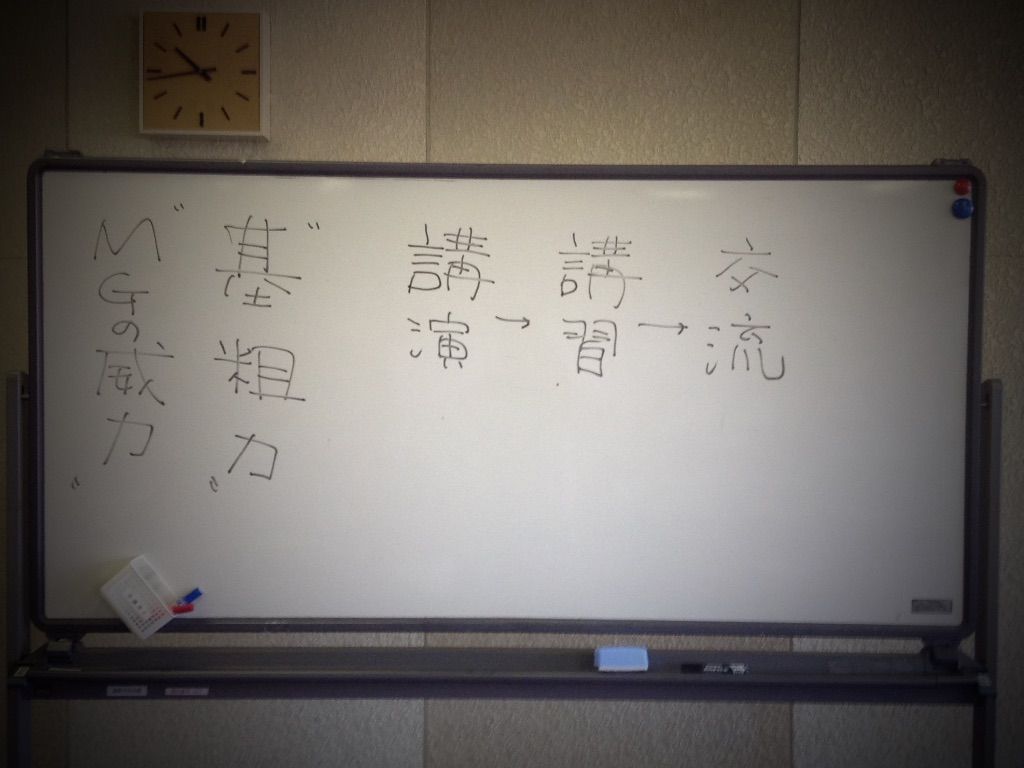 講演→講習→交流
〝基粗力〟
〝MGの威力〟